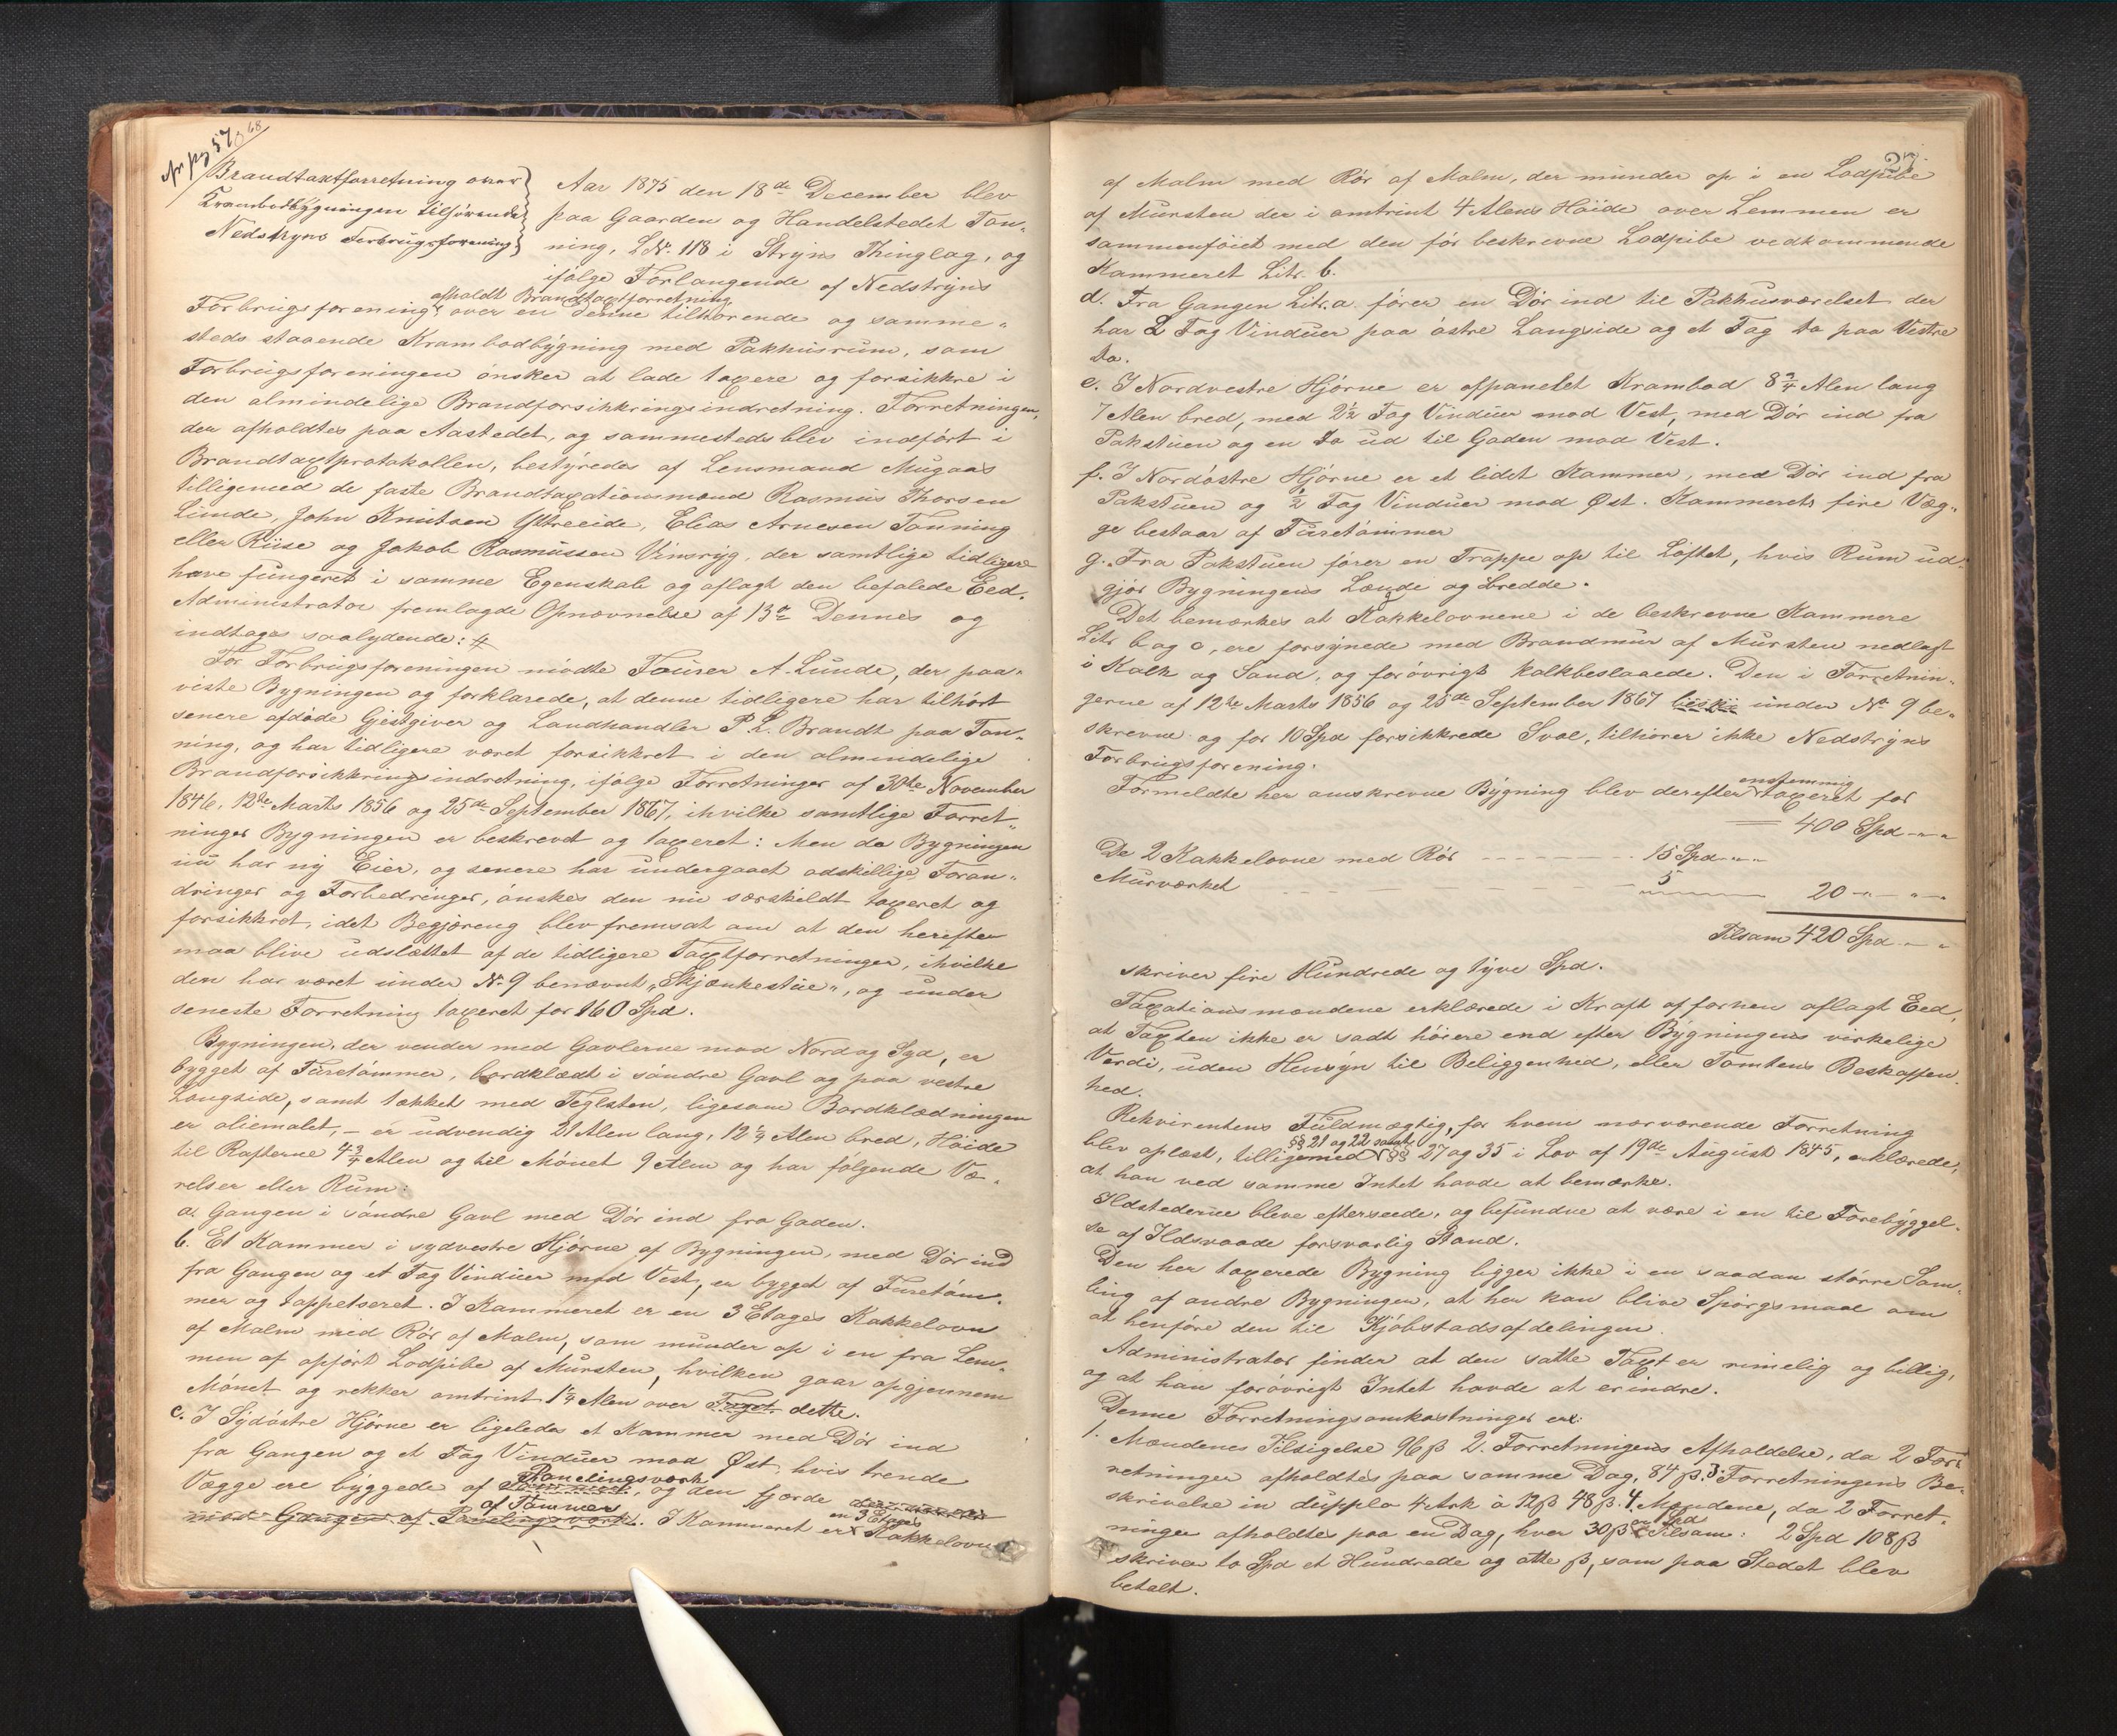 pag 57 & 68
Brandtaxtforretning over
Krambodbygningen tilhörende
Nedstryns Forbrugsforening
Aar 1875 den 18de December blev
paa Gaarden og Handelstedet Ton-
ning, L.Nr. 118 i Stryns Thinglag, og
ifölge Forlangende af Nedstryns
Forbrugsforening afholdt Brandtaxtforretning over en denne tilhörende og samme-
steds staaende Krambodbygning med Pakhusrum, som
Forbrugsforeningen önsker at lade taxere og forsikkre i
den almindelige Brandforsikkringsindretning. Forretningen,
der afholdtes paa Aastedet, og sammesteds blev indfört i
Brandtaxtprotokollen, bestyredes af Lensmand Mugaas
tilligemed de faste Brandtaxationsmænd Rasmus Thorsen
Lunde, John Knutsen Ytreeide, Elias Arnesen Tonning
eller Riise og Jakob Rasmussen Vinsryg, der samtlige tidligere
have fungeret i samme Egenskab og aflagt den befalede Eed.
Administrator fremlagde Opnævnelse af 13de Dennes og
indtages saalydende: #
For Forbrugsforeningen mödte Fourer A. Lunde, der paa-
viste Bygningen og forklarede, at denne tidligere har tilhört
senere afdöde Gjestgiver og Landhandler P. L. Brandt paa Ton-
ning, og har tidligere været forsikkret i den almindelige
Brandforsikkringsindretning, ifölge Forretninger af 30te November
1846, 12te Marts 1856 og 25de September 1867, ihvilke samtlige Forret-
ninger Bygningen er beskrevet og taxeret: Men da Bygningen
nu har ny Eier, og senere har undergaaet adskillige Foran-
dringer og Forbedringer, önskes den nu særskildt taxeret og
forsikkret, idet Begjæreng blev fremsat om at den herefter
maa blive udslettet af de tidligere Taxtforretninger, ihvilke
den har været under Nr 9 benævnt "Skjænkestue", og under
seneste Forretning taxeret for 160 Spd.
Bygningen, der vender med Gavlerne mod Nord og Syd, er
bygget af Furetömmer, bordklædt i söndre Gavl og paa vestre
Langside, samt tækket med Teglsten, ligesom Bordklædningen
er oliemalet, - er udvendig 21 Alen lang, 12 1/4 Alen bred, Höide
til Rafterne 4 3/4 Alen og til Mönet 9 Alen og har fölgende Væ-
relser eller Rum:
a. Gangen i söndre Gavl med Dör ind fra Gaden.
b. Et Kammer i sydvestre Hjörne af Bygningen, med Dör ind
fra Gangen og et Fag Vinduer mod Vest, er bygget af Furetöm-
mer og tappetseret. I Kammeret er en 3 Etages Kakkelovn
af Malm med Rör af Malm, som munder op i en fra Lem-
men af opfört Lodpibe af Mursten, hvilken gaar opgjennem
Mönet og rekker omtrint 1 1/4 Alen over Taget dette.
c. I Sydöstre Hjörne er ligeledes et Kammer med Dör ind
fra Gangen og et Fag Vinduer mod Øst, hvis trende
Vægge ere byggede af Panelingsværk, og den fjerde
mod Gangen af Panelingsværk af Tömmer. I Kammeret er en 3 Etages Kakkelovn
27
af Malm med Rör af Malm, der munder op i en Lodpibe
af Mursten der i omtrint 4 Alens Höide over Lemmen er
sammenföiet med den för beskrevne Lodpibe vedkommende
Kammeret Litr. b.
d. Fra Gangen Litr. a förer en Dör ind til Pakhusværelset der
har 2 Fag Vinduer paa östre Langside og et Fag do paa Vestre
do.
e. I Nordvestre Hjörne er afpanelet Krambod 8 3/4 Alen lang
7 Alen bred, med 2 1/2 Fag Vinduer mod Vest, med Dör ind fra
Pakstuen og en do ud til Gaden mod Vest.
f. I Nordöstre Hjörne er et lidet Kammer, med Dör ind fra
Pakstuen og 1/2 Fag Vinduer mod Øst. Kammerets fire Væg-
ge bestaar af Furetömmer
g. Fra Pakstuen förer en Trappe op til Loftet, hvis Rum ud-
gjör Bygningens Længde og Bredde.
Det bemærkes at Kakkelovnene i de beskrevne Kammere
Litr. b og c, ere forsynede med Brandmur af Mursten nedlagt
i Kalk og Sand, og forövrigt kalkbeslaaede. Den i Forretnin-
gerne af 12te Marts 1856 og 25de September 1867 under Nr 9 be-
skrevne og for 10 Spd forsikkrede Sval, tilhörer ikke Nedstryns
Forbrugsforening.
Formeldte her omskrevne Bygning blev derefter enstemmig taxeret for
400 Spd - " - "
De 2 Kakkelovne med Rör - - - - 15 Spd - " -
Murværket - - - - 5 - " - 20 - " - " -
Tilsam 420 Spd - " -
skriver fire Hundrede og tyve Spd.
Taxationsmændene erklærede i Kraft af forhen aflagt Eed,
at Taxten ikke er sadt höiere end efter Bygningens virkelige
Verdi, uden Hensyn til Beliggenhed, eller Tomtens Beskaffen-
hed.
Rekvirentens Fuldmægtig, for hvem nærværende Forretning
blev oplæst, tilligemed §§ 21 og 22 samt §§ 27 og 35 i Lov af 19de August 1845, erklærede,
at han ved samme Intet havde at bemærke.
Ildstederne bleve efterseede, og befundne at være i en til Forebyggel-
se af Ildsvaade forsvarlig Stand.
Den her taxerede Bygning ligger ikke i en saadan större Sam-
ling af andre Bygninger, at her kan blive Spörgsmaal om
at henföre den til Kjöbstadsafdelingen.
Administrator finder at den satte Taxt er rimelig og billig,
og at han forövrigt Intet havde at erindre.
Denne Forretnings omkostninger er:
1. Mændenes Tilsigelse 96 ß 2. Forretningens Afholdelse, da 2 For-
retninger afholdtes paa samme Dag, 84 ß. 3. Forretningens Be-
skrivelse in dupplo 4 Ark à 12 ß 48 ß. 4. Mændene, da 2 Forret-
ninger afholdtes paa en Dag, hver 30 ß er 1 Spd Tilsam: 2 Spd 108 ß
skriver to Spd et Hundrede og otte ß, som paa Stedet blev
betalt.